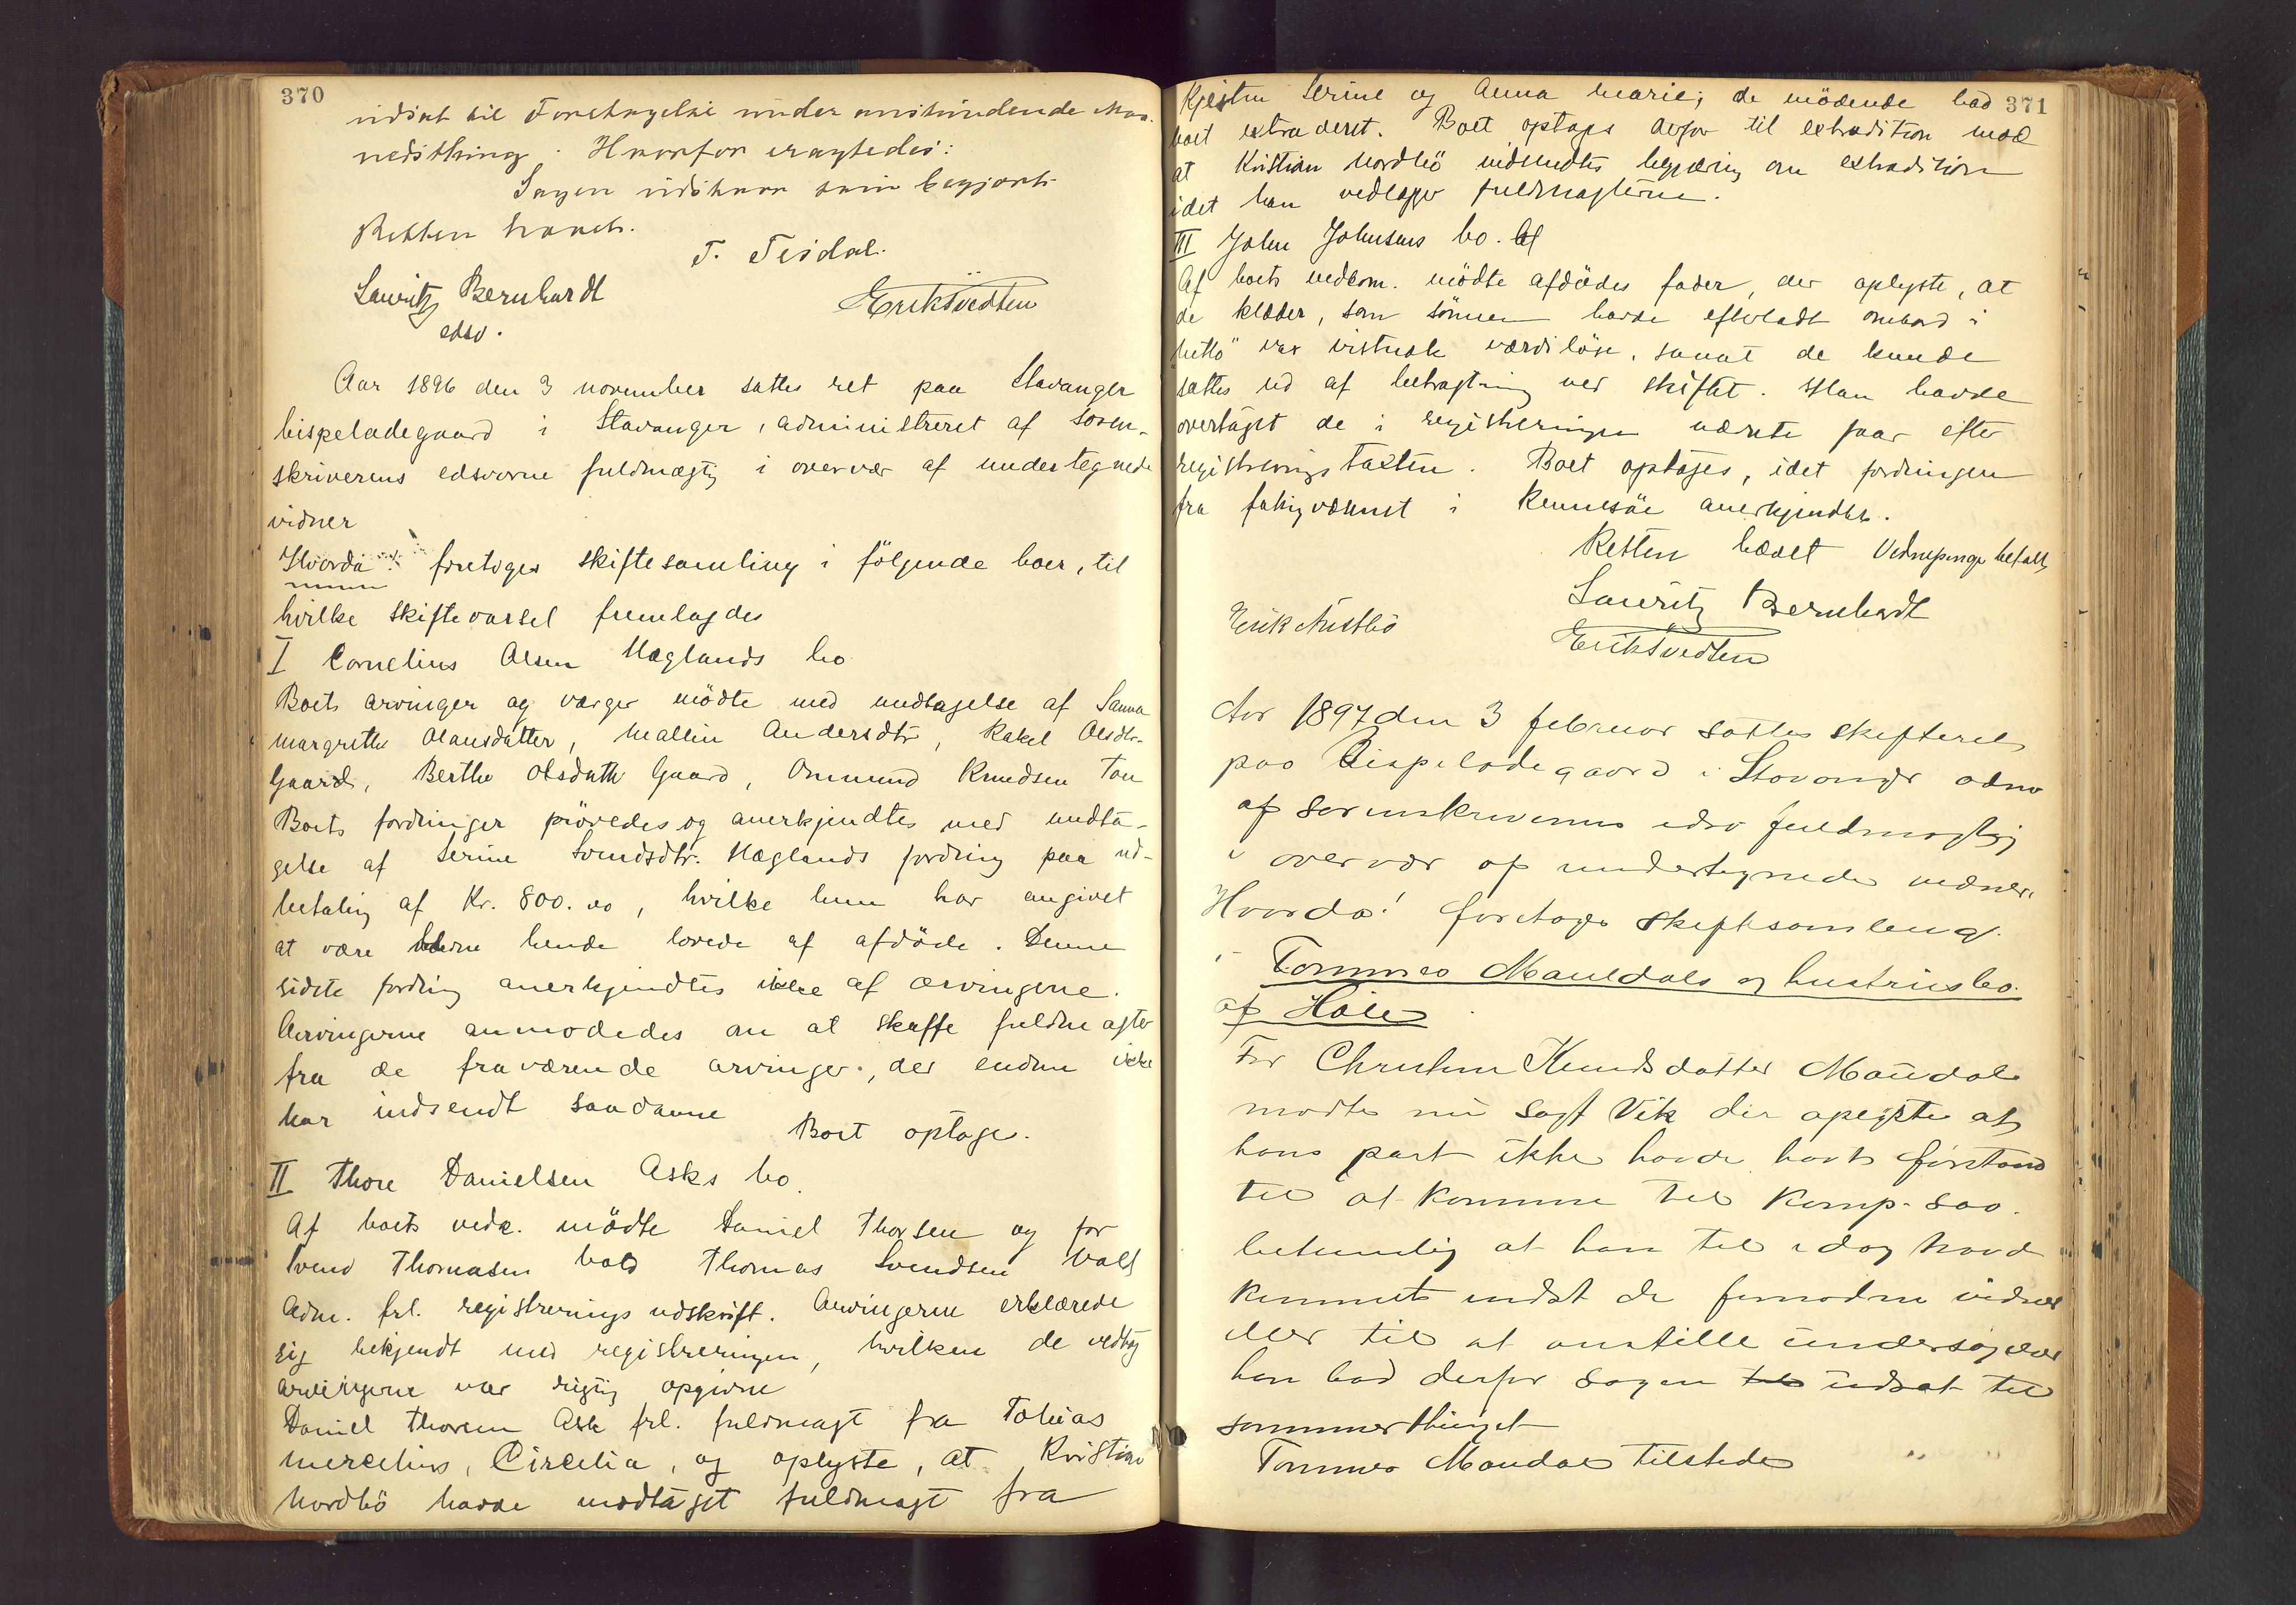 370
udsat til Foretagelse under anstundende Maa-
nedsthing. Hvorfor eragtedes:
Sagen udstaar som begjært
Retten hævet.
T. Tisdal.
Lauritz Bernhardt
edsv.
Erik Tvedten
Aar 1896 den 3 november sattes ret paa Stavanger
bispeladegaard i Stavanger, administreret af soren-
skriverens edsvorne fuldmægtig i overvær af undertegnede
vidner
Hvorda: foretoges skiftesamling i følgende boer, til
hvilke skiftevarsel fremlagdes
I Cornelius Olsen Høglands bo
Boets arvinger og værger mødte med undtagelse af Sanna
Margrethe Olausdatter, Mallin Andersdtr, Rakel Olsdtr.
Gaard, Berthe Olsdatter Gaard, Ommund Knudsen Tau
Boets fordringer prøvedes og anerkjendtes med undta-
gelse af Serine Svendsdtr. Høglands fordring paa ud-
betaling af Kr. 800.00, hvilke hun har angivet
at være hende lovede af afdøde. Denne
sidste fordring anerkjendtes ikke af arvingerne.
Arvingerne anmodedes om at skaffe fuldmagter
fra de fraværende arvinger, der endnu ikke
har indsendt saadanne
Boet optages.
II Thore Danielsen Asks bo.
Af boets vedk. mødte Daniel Thorsen og for
Svend Thomasen Vold Thomas Svendsen Vold
Adm. frl. registrerings udskrift. Arvingerne erklærede
sig bekjendt med registreringen, hvilken de vedtog
arvingerne var rigtig opgivne
Daniel Thorsen Ask frl. fuldmagt fra Tobias
Mercelius, Circelia, og oplyste, at Kristian
Nordbø havde modtaget fuldmagt fra
371
Kjestin Serine og Anna Marie; de mødende bad
boet extraderet. Boet optages derfor til extradition mod
at Kristian Nordbø indsendtes begjæring om extradition
idet han vedlægger fuldmagterne.
III John Johnsens bo. Af
Af boets vedkom. mødte afdødes fader, der oplyste, at
de klæder, som sønnen havde efterladt ombord i
var vistnok værdiløse, samt de kunde
sættes ud af betragtning ved skiftet. Han havde
overtaget de i registreringen nævnte faar efter
registreringstaxten. Boet optages, idet fordringen
fra fattigvæsenet i Rennesøe anerkjendtes.
Retten hævet Vidnepenge betalt
Lauritz Bernhardt
Erik Austbø
Erik Tvedten
Aar 1897 den 3 februar sattes skifteret
paa Bispeladegaard i Stavanger adm
af sorenskriverens edsv fuldmægtig
i overvær af undertegnede vidner.
Hvorda! foretoges skiftesamling.
i Tønnes Mauldals og hustrus bo.
af Høle
For Christine Knudsdatter Maudal
mødte nu sagf Vik der oplyste at
hans part ikke havde havt forstand
til at komme til komp. saa
betimelig at han til idag havd
kunnet indst de fornødne vidner
eller til at anstille undersøgelser
han bad derfor sagen udsat til
sommerthinget
Tønnes Maudal tilstede